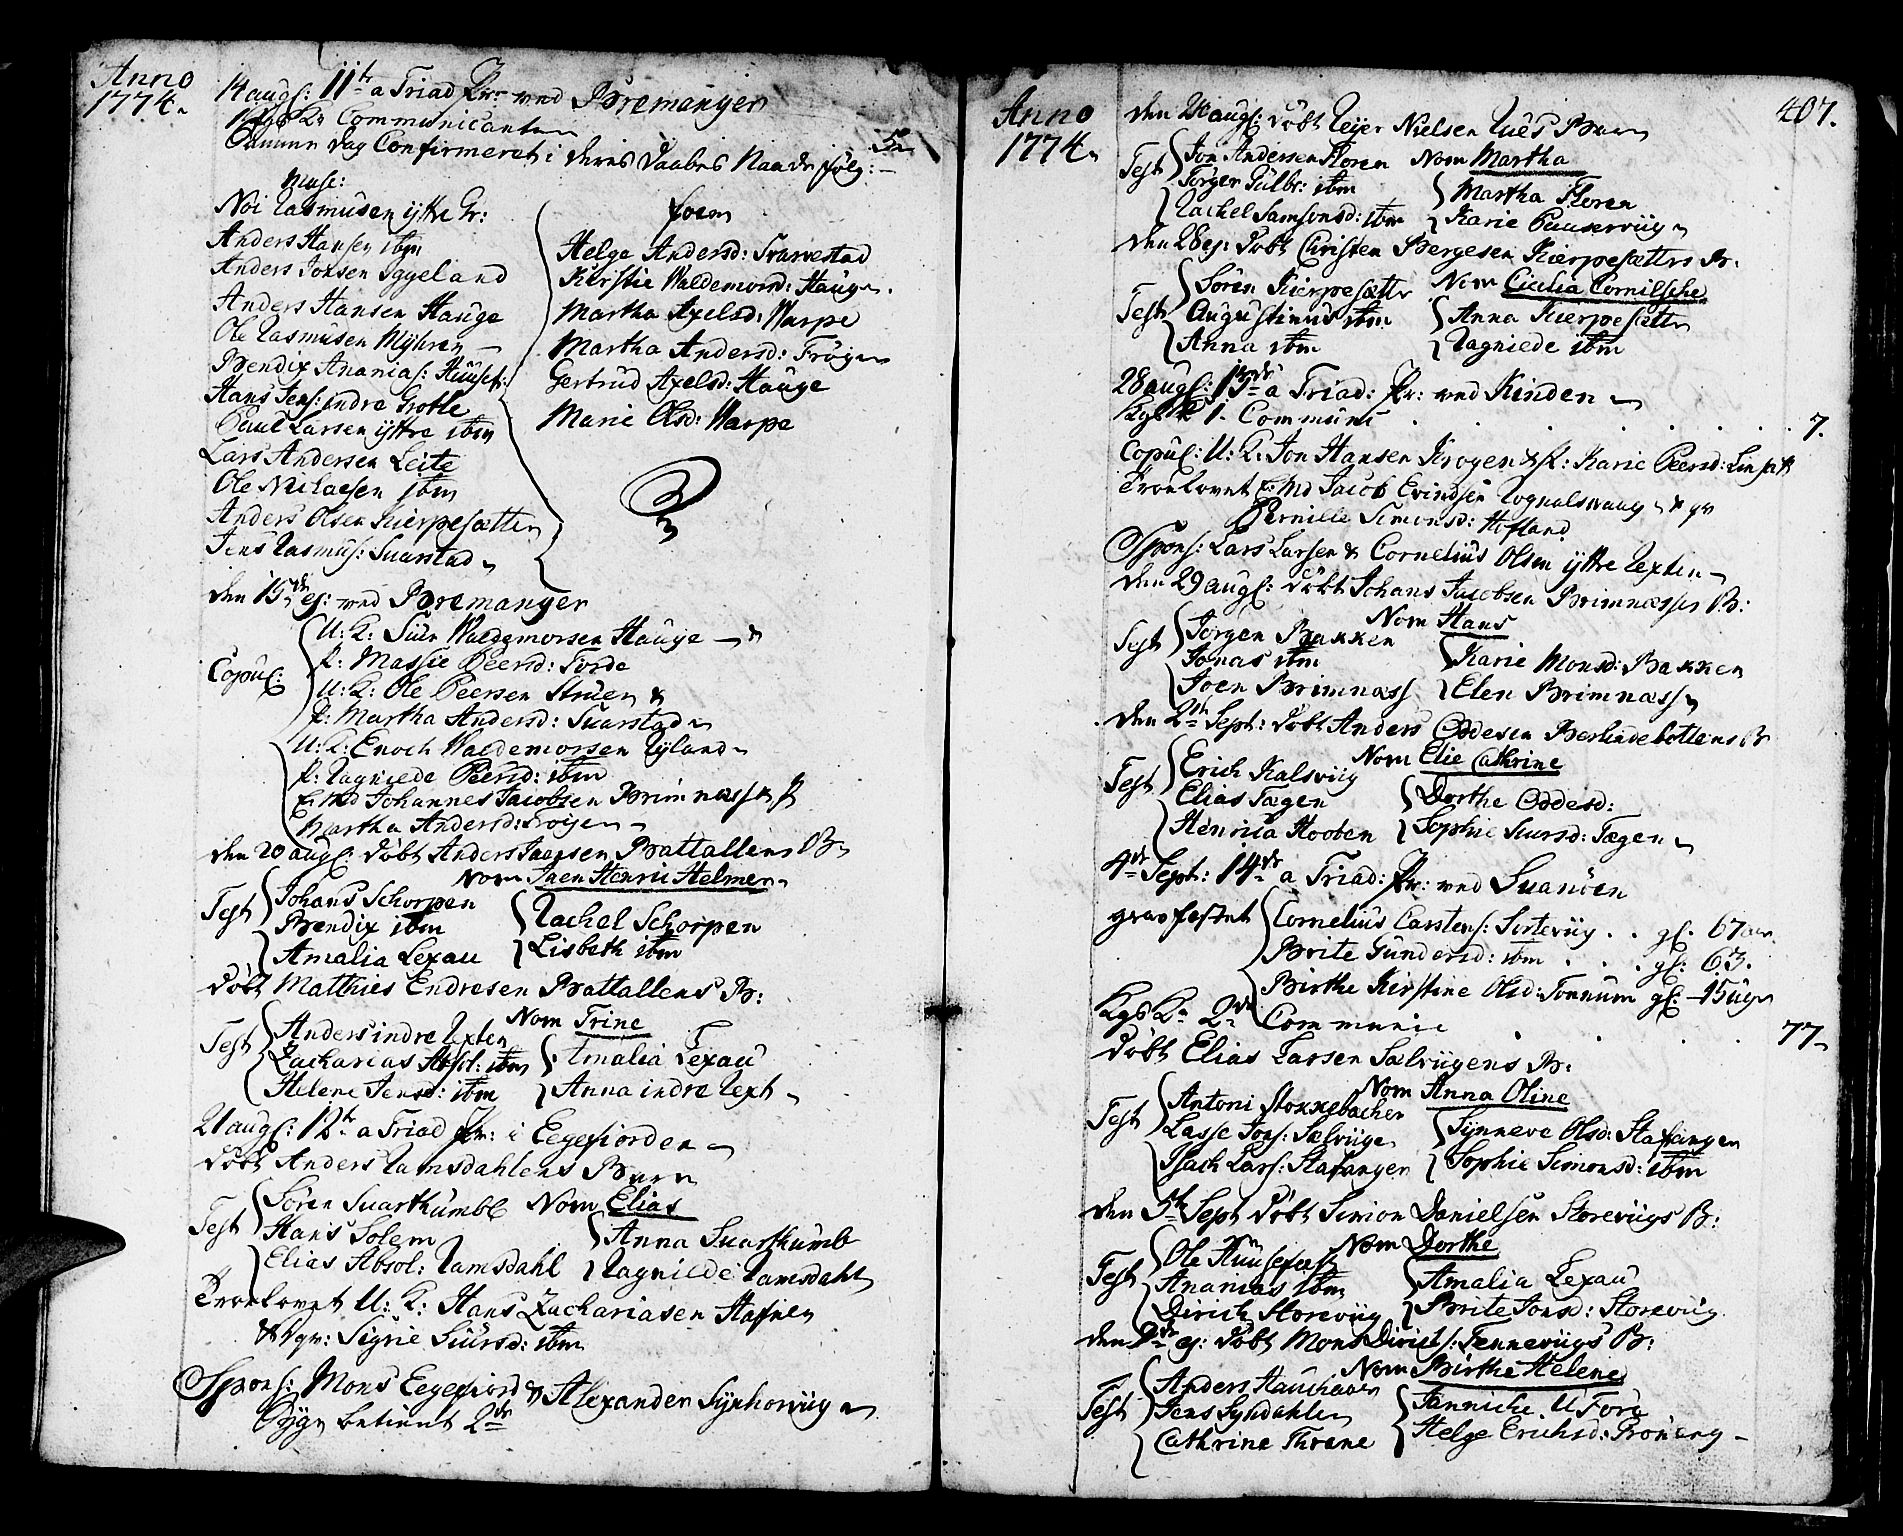 Anno
1774.
14 augs: 11te a Triad Pr: ved Bremanger
Kgs K: Communicanter
Samme Dag Confirmeret i deres Daabes Naade følg:
Masc:
Noi Rasmusen ytte Gr:
Anders Hansen ibm
Anders Jonsen Iggeland
Anders Hansen Hauge
Ole Rasmusen Myhren
Bendix Ananias: Huuset:
Hans Jens: indre Grotle
Paul Larsen yttre ibm
Lars Andersen Leite
Ole Nielsen ibm
Anders Olsen Kierpesætter
Jens Rasmus: Suarstad
foem
Helge Andersd: Svarvestad
Kirstie Waldemorsd: Hauge
Martha Axelsd: Warpe
Martha Andersd: Frøyen
Gertrud Axelsd: Hauge
Marie Olsd: Warpe
den 15de ej: ved Bremanger
Copul:
U: K: Siur Waldemorsen Hauge &
P: Massie Peersd: Førde
U: K: Ole Peersen Struen &
P: Martha Andersd: Suarstad
U: K: Enoch Waldemorsen Ryland
P: Ragniede Peersd: ibm
E: Md Johannes Jacobsen Brimnæss & P
Martha Andersd: Frøyen
den 20 augs: døbt Anders Jacobsen Battallens B
Nom Jaen Henric Helmer
Test
Johans Schorpen
Bendix ibm
Amalia Lexau
Rachel Schorpen
Lisbeth ibm
døbt Matthies Endresen Battallens B:
Nom Trine
Test
Anders indre Rexten
Zacharias Absol: ibm
Helene Jensd: ibm
Amalia Lexau
Anna indre Rext
21 augs: 12te a Triad Pr: i Eegefiorden
døbt Anders Ramsdahlens Barn
Nom Elias
Test
Søren Suarthumbl
Hans Solem
Elias Absol: Ramsdahl
Anna Suarthumb
Ragnilde Ramsdahl
Troelovet U: K: Hans Zachariasen Stafnen
& Pgn: Sigrie Siursd: ibm
Spons: Mons Eegefiord & Alexander Synhorviig
betient 2de
Anno
1774.
407.
den 20 augs: døbt Reier Nielsen Rues Barn
Nom Martha
Test
Jon Andersen Floren
Torger Gulbr: ibm
Rachel Samsonsd: ibm
Martha Floren
Karie Pauserviig
den 28 ej: døbt Christen Børgesen Kierpesætters B.
Nom Cicilia Cornilsche
Test
Søren Kierpesætter
Augustinus ibm
Anna ibm
Anna Kierpesætter
Ragniede ibm
28 augs: 13de a Triad: Pr: ved Kinden
Kgs K 1. Communi . . . . . . . 7.
Copul: U: K: Jon Hansen Krogen & P: Karie Peersd:
Troelovet E: Md Jacob Evindsen Rognalsvaag & Pgn
Pernille Simonsd: Hofland
Spons: Lars Larsen & Cornelius Olsen yttre Rexten
den 29 augs: døbt Johans Jacobsen Brimnæsses B:
Nom Hans
Test
Jørgen Bakken
Jonas ibm
Joen Brimnæss
Karie Monsd: Bakken
Elen Brimnæss
den 2de Sept: døbt Anders Oddesen Berlindebottens B
Nom Elie Cathrine
Test
Erich Kalsviig
Elias Tægen
Henrica Hooben
Dorthe Oddesd:
Sophie Siursd: Tægen
4de Sept: 14de a Triad: Pr: ved Suanøen
gravfæstet
Cornelius Carstens: Sørteviig . . gl. 67 aar.
Brite Gundersd: ibm . . . gl: 63.
Birthe Kirstine Olsd: Tonnum gl: 15 ug
Kgs K 2de Communic . . . . 77
døbt Elias Larsen Sælviigens B:
Nom Anna Oline
Test
Antoni Stokkebacher
Lasse Jons: Sælviige
Isach Lars: Stafangen
Synneve Olsd: Stafangen
Sophie Simonsd: ibm
den 5te Sept døbt Simon Danielsen Storeviigs B:
Nom Dorthe
Test
Ole Huusefæst
Ananias ibm
Dirich Storeviig
Amalia Lexau
Brite Jonsd: Storeviig
den 9de ej: døbt Mons Dirichs: Tenneviigs B:
Nom Birthe Helene
Test
Anders Hauchaaen
Jens Syndahlen
Cathrine Throne
Janniche U Ford
Helge Erichsd: Prøneng